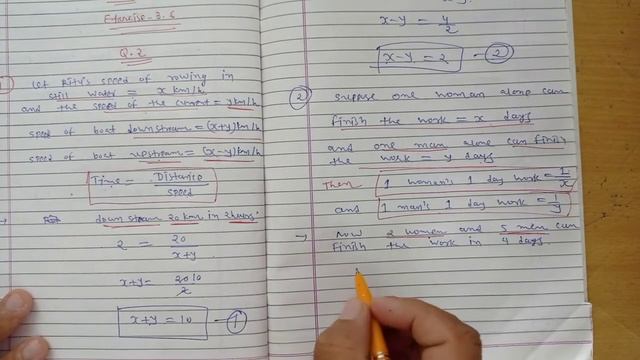 Exercise - 3.6
Q.2
1 Let Ritu's speed of rowing in
still water = x km/h
and the speed of the current = y km/h
speed of boat downstream = (x+y) km/h
speed of boat upstream = (x-y) km/h
Time = Distance / speed
down stream 20 km in 2 hours
2 = 20 / x+y
x+y = 20 10 / 2
x+y = 10 - 1
x-y = 4 / 2
x-y = 2 - 2
2 suppose one woman alone can
finish the work = x days
and one man alone can finish
the work = y days
Then 1 women's 1 day work = 1/x
and 1 man's 1 day work = 1/y
→ Now 2 women and 5 men can
finish the work in 4 days